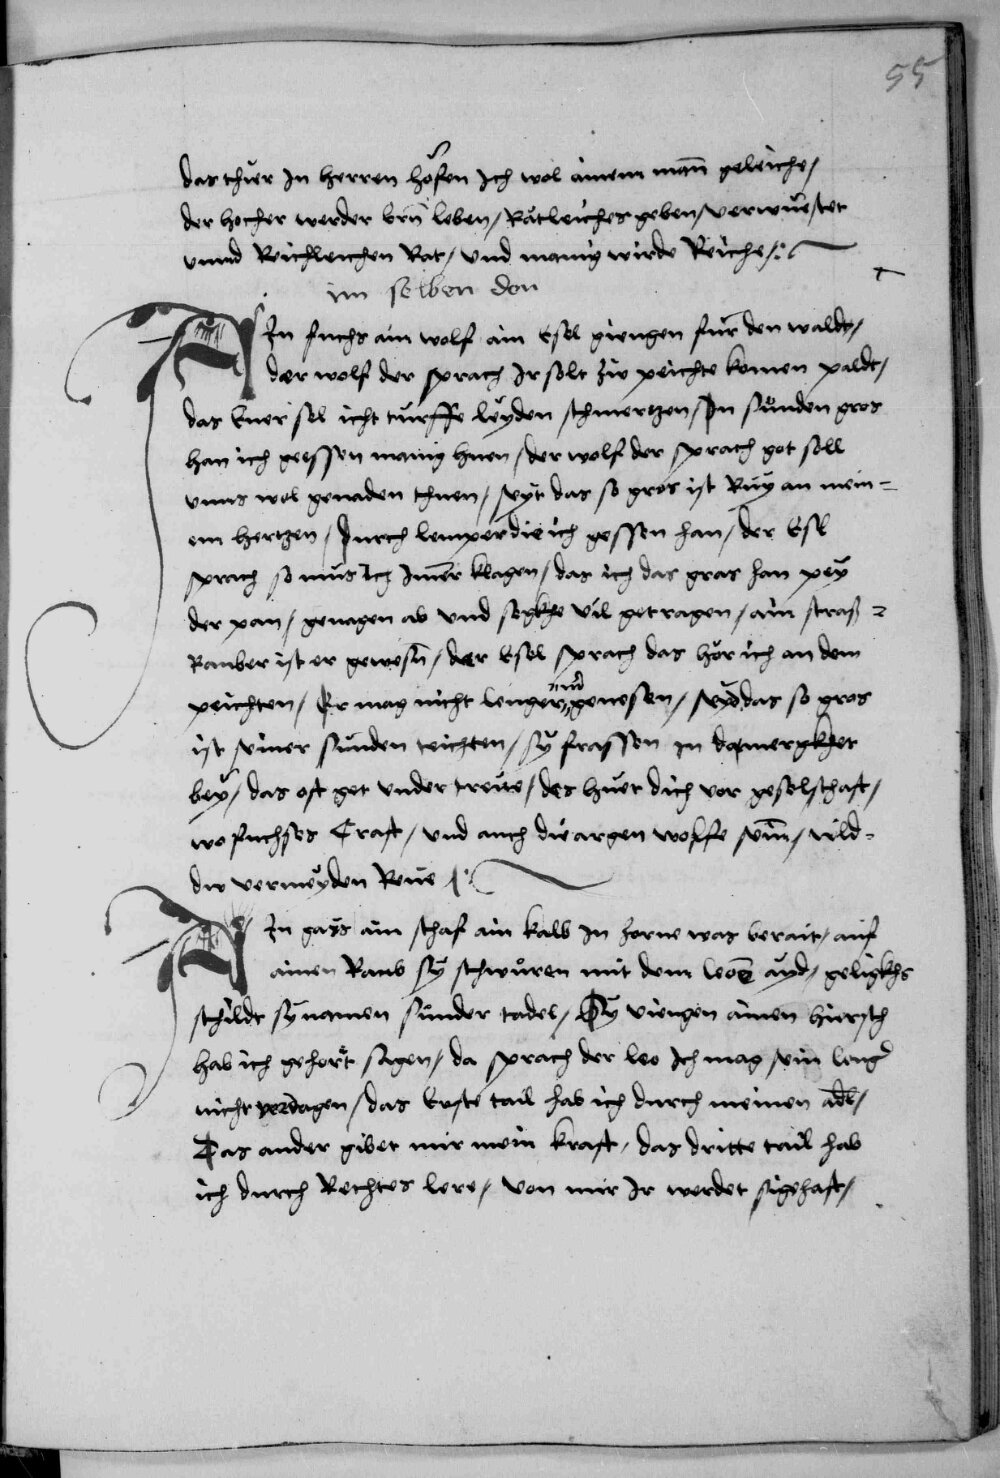 55
das thier In herren höfen Ich wol ainem man̄ geleiche /
der hocher werder brn̄ leben / Rätleiches geben / verwuestet
vnnd Reichleichen Rat / vnd manig wirde Reiche /:
im selben don
AIn fuchs ain wolf ain Esel giengen für den waldt /
der wolf der sprach Ir solt ziv peichte komen paldt /
das Ewer sel icht türffe leyden schmertzen / In sünden gros
han ich geessen manig huen / der wolf der sprach got soll
vnns wol genaden thuen / seyt das so gros ist Ruy an mein=
em hertzen / Durch lemper die ich gessen han / der Esl
sprach so mus Ich Im̄er klagen / das ich das gras han pey
der pan / genagen ab vnd segkhe vil getragen / ain straß=
Rauber ist er gewesn̄ / der Esel sprach das hör ich an dem
peichten / Er mag nicht lenger mit genesen / seyd das so gros
ist seiner sünden teichten / sy frassen in da mergkhet
bey / das oft get vnder treue / des huet dich vor geselschaft /
wo fuchses Craft / vnd auch die argen wolffe sein̄ / wild=
dw vermeyden Reue /:
AIn gays ain schaf ain kalb In zorne was berait / auf
ainen Raub sy schwuren mit dem leoē ayd / geligkhs
schildt sy namen sunder tadel / Sy viengen ainen hiersch
hab ich gehört sagen / da sprach der leo Ich mag sein leng̉
nicht verdagen / das Erste tail hab ich durch meinen adl̄ /
Das ander gibet mir mein kraft / das dritte tail hab
ich durch Rechtes lere / von mir Ir werdet sigehaft /